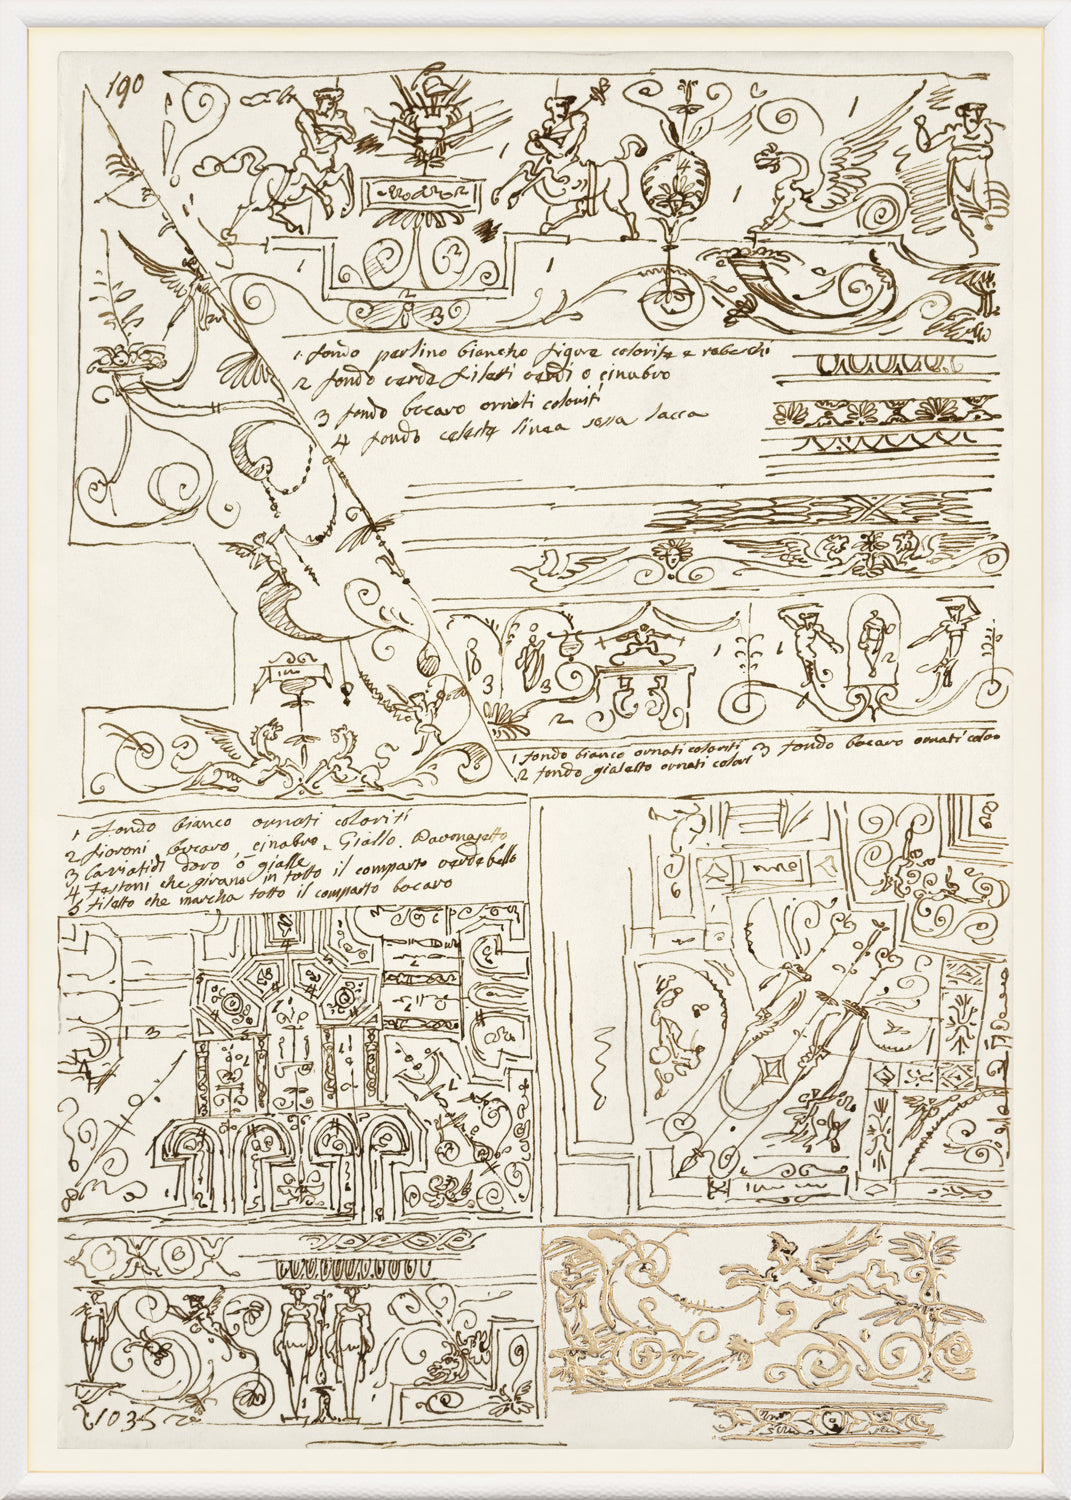 190
1. fondo perlino biancho figure colorite e rabeschi
2 fondo verde filetti verdi o cinabro
3 fondo bocaro ornati coloriti
4 fondo celeste linea rossa lacca
1 fondo bianco ornati coloriti
2 fondo gialetto ornati colori
3 fondo bocaro ornati colo-
1 fondo bianco ornati coloriti
2 fioroni bocaro, cinabro, Giallo, Pavonazetto
3 Cariatidi doro o gialle
4 Festoni che girano in totto il comparto verde bello
5 filetto che marcha totto il comparto bocaro
1035